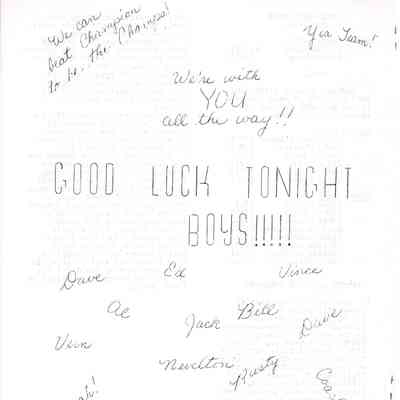 We can
beat Champion
to be the Champs!
Yea Team!
We're with
YOU
all the way!!
GOOD LUCK TONIGHT
BOYS!!!!!
Dave Ed Vince
Al Jack Bill Dave
Vern Newlton Rusty